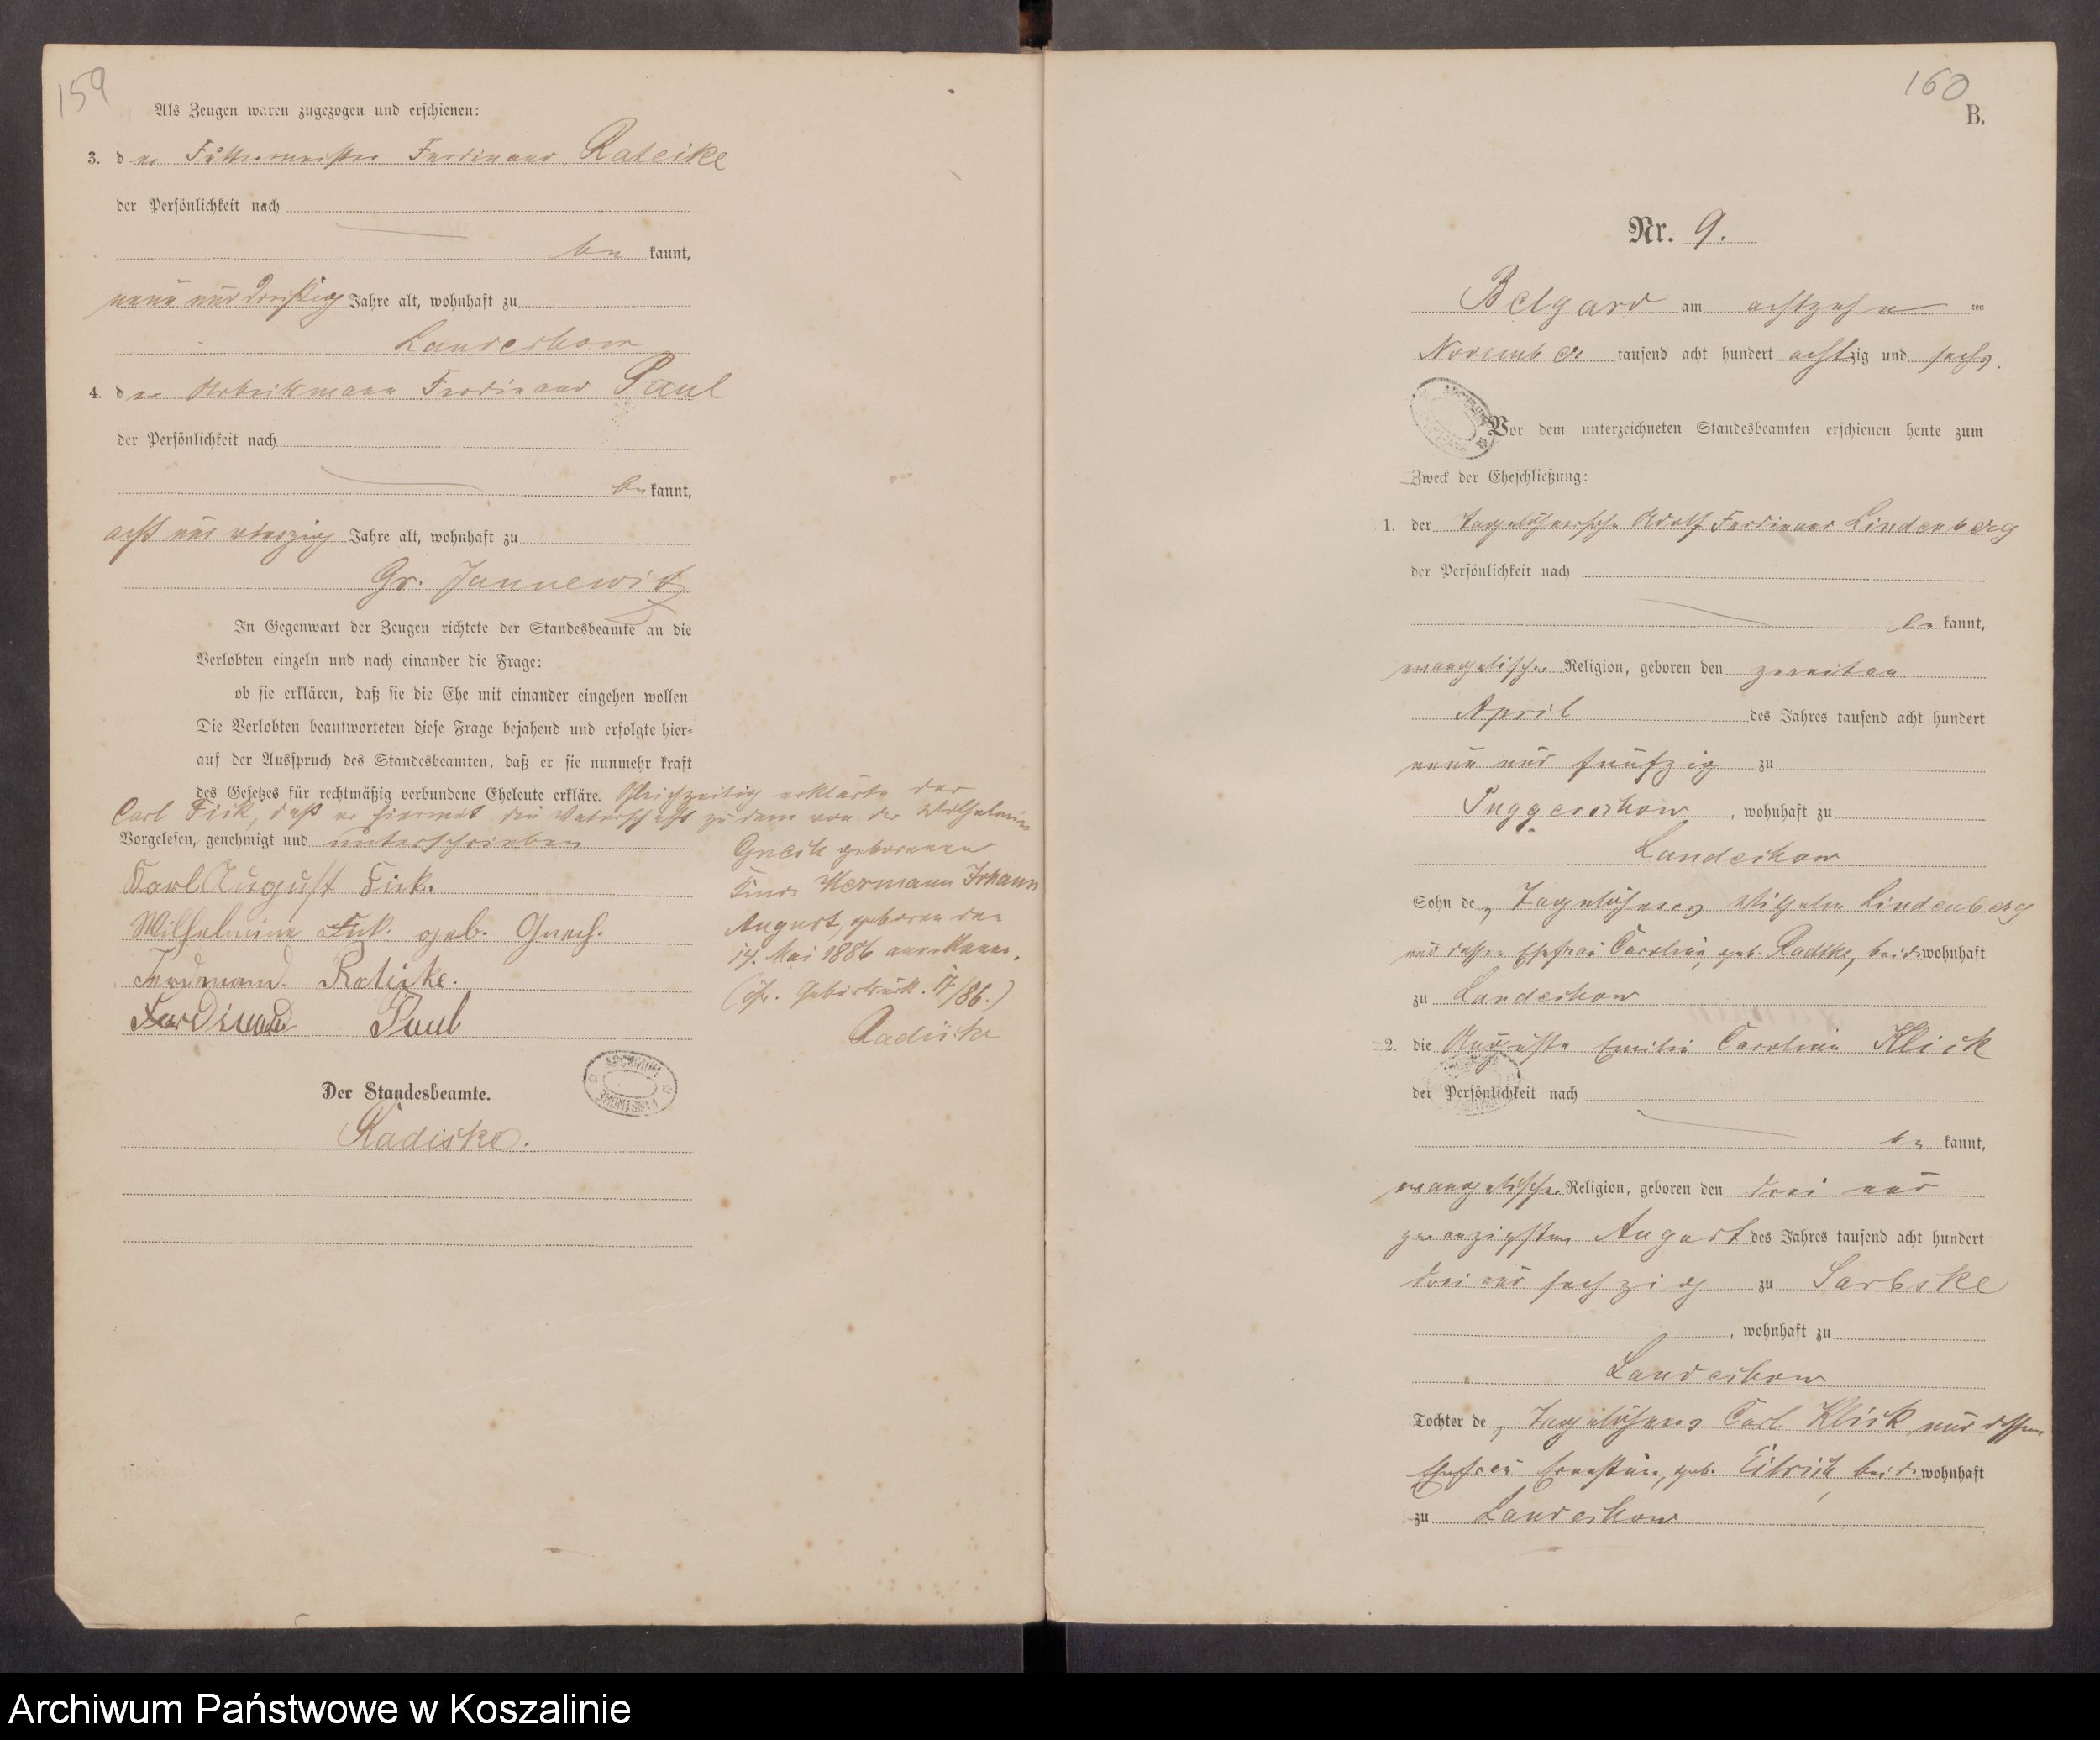 159
Als Zeugen waren zugezogen und erschienen:
3. der Futtermeister Ferdinand Rateike
der Persönlichkeit nach
be kannt,
neun und dreißig Jahre alt, wohnhaft zu
Landechow
4. der Arbeitsmann Ferdinand Paul
der Persönlichkeit nach
be kannt,
acht und vierzig Jahre alt, wohnhaft zu
Gr. Jannewitz
In Gegenwart der Zeugen richtete der Standesbeamte an die
Verlobten einzeln und nach einander die Frage:
ob sie erklären, daß sie die Ehe mit einander eingehen wollen
Die Verlobten beantworteten diese Frage bejahend und erfolgte hier-
auf der Ausspruch des Standesbeamten, daß er sie nunmehr kraft
des Gesetzes für rechtmäßig verbundene Eheleute erkläre. Gleichzeitig erklärte der
Carl Fick, daß er hiermit die Vaterschaft zu dem von der Wilhelmine
Gnech geborenen
Kinde Hermann Johann
August, geboren den
14. Mai 1886 anerkenne.
(cfr. Geburtsurk. 17/86.)
Radiske
Vorgelesen, genehmigt und unterschrieben
Karl August Fick.
Wilhelmine Fick. geb. Gnech.
Ferdinand. Rateike.
Ferdinand Paul
Der Standesbeamte.
Radiske.
ARCHIWUM
160
B.
Nr. 9.
Belgard am achtzehn ten
November tausend acht hundert achtzig und sechs.
Vor dem unterzeichneten Standesbeamten erschienen heute zum
Zweck der Eheschließung:
1. der Tagelöhnersohn Adolf Ferdinand Lindenberg
der Persönlichkeit nach
be kannt,
evangelischer Religion, geboren den zweiten
April des Jahres tausend acht hundert
neun und fünfzig zu
Puggerschow, wohnhaft zu
Landechow
Sohn des Tagelöhners Wilhelm Lindenberg
und dessen Ehefrau Caroline, geb. Radtke, beide wohnhaft
zu Landechow
2. die Auguste Emilie Caroline Klick
der Persönlichkeit nach
be kannt,
evangelischer Religion, geboren den drei und
zwanzigsten August des Jahres tausend acht hundert
drei und sechzig zu Sarbske
, wohnhaft zu
Landechow
Tochter des Tagelöhners Carl Klick und dessen
Ehefrau Ernestine, geb. beide wohnhaft
zu Landechow
Archiwum Państwowe w Koszalinie